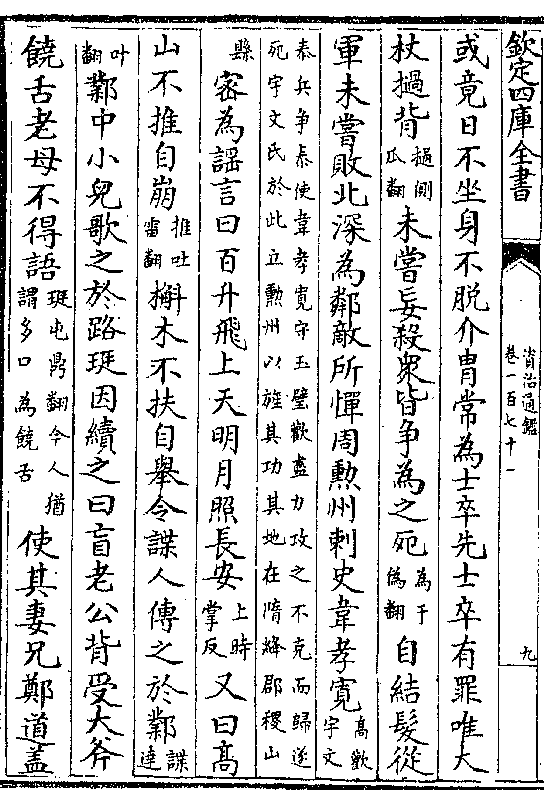 欽定四庫全書
資治通鑑
卷一百七十一
九
或竟日不坐身不脫介冑常為士卒先士卒有罪唯大
杖撾背撾側瓜翻未嘗妄殺眾皆爭為之死為于偽翻自結髮從
軍未嘗敗北深為鄰敵所憚周勲州刺史韋孝寛高歡宇文
泰兵爭泰使韋孝寛守玉璧歡盡力攻之不克而歸遂
死宇文氏於此立勲州以旌其功其地在隋絳郡稷山
縣密為謡言曰百升飛上天明月照長安上時掌反又曰高
山不推自崩推吐雷翻槲木不扶自舉令諜人傳之於鄴諜達
叶翻鄴中小兒歌之於路珽因續之曰盲老公背受大斧
饒舌老母不得語珽屯鼎翻今人猶謂多口為饒舌使其妻兄鄭道盖